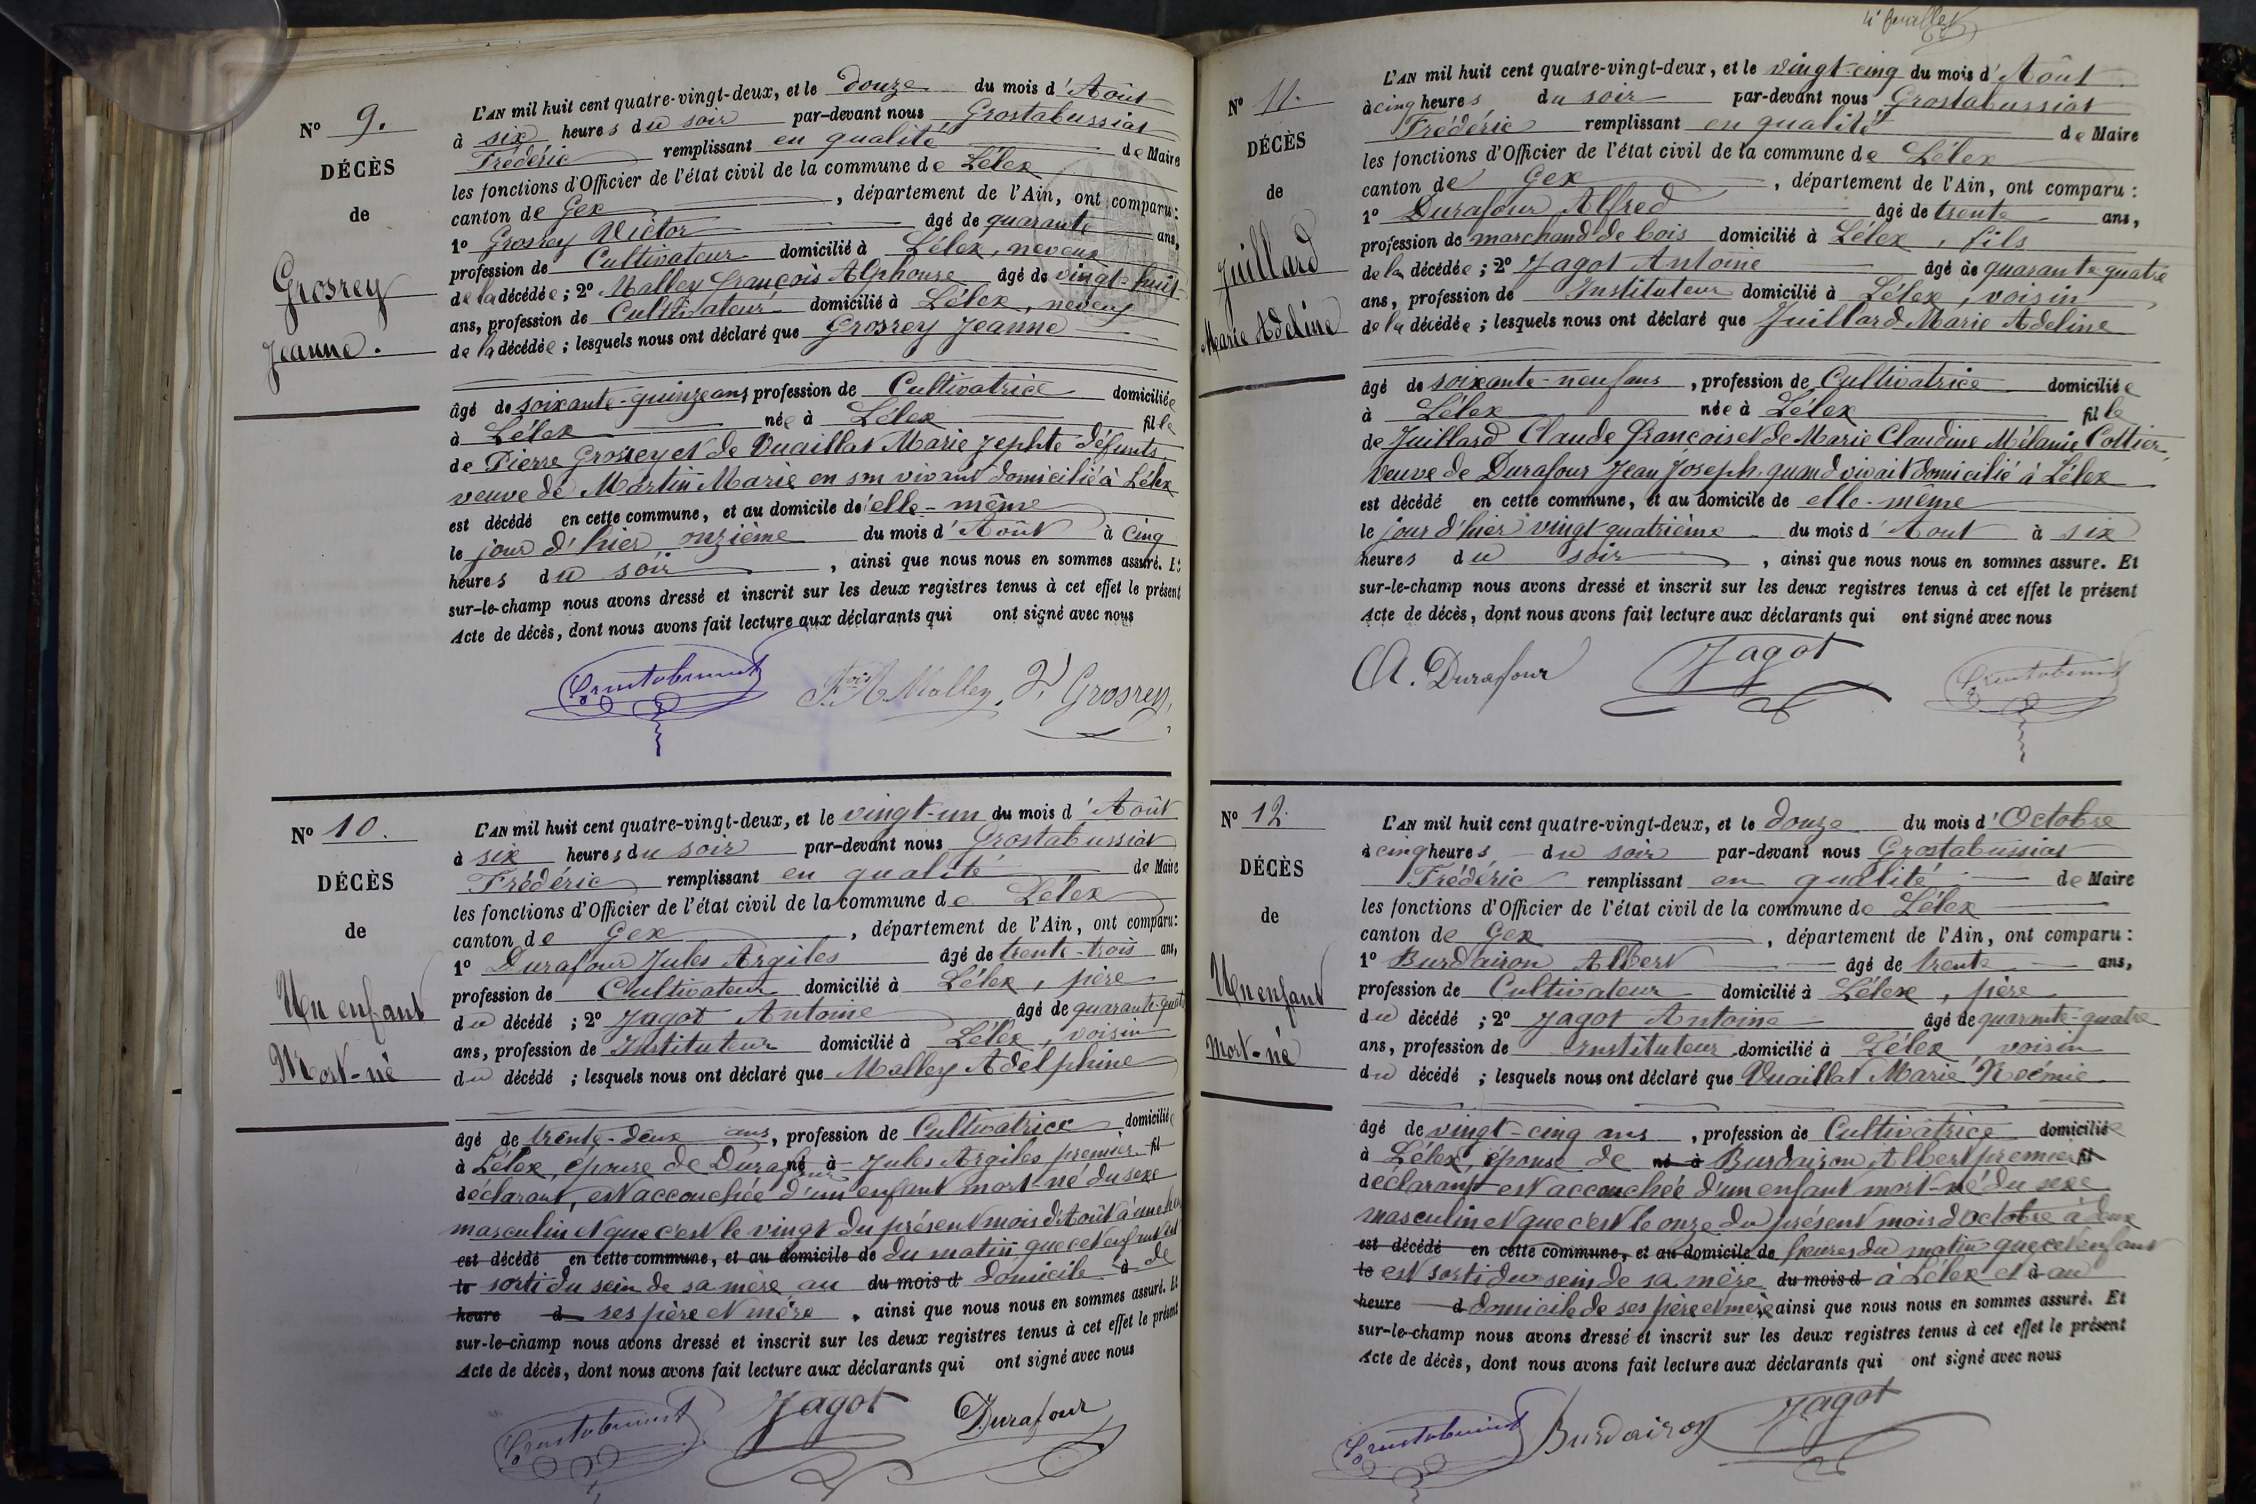 Nº 9.
DÉCÈS
de
Grosrey
Jeanne.
L'AN mil huit cent quatre-vingt-deux, et le douze du mois d'Août
à six heures du soir par-devant nous Grostabussiat
Frédéric remplissant en qualité de Maire
les fonctions d'Officier de l'état civil de la commune de Lélex
canton de Gex, département de l'Ain, ont comparu :
1º Grosrey Victor âgé de quarante ans,
profession de Cultivateur domicilié à Lélex, neveux
de la décédée ; 2º Malley François Alphonse âgé de vingt-huit
ans, profession de Cultivateur domicilié à Lélex, neveux
de la décédée ; lesquels nous ont déclaré que Grosrey Jeanne
âgé de soixante-quinze ans, profession de Cultivatrice domiciliée
à Lélex née à Lélex fille
de Pierre Grosrey et de Vuaillat Marie Zephte défunts,
veuve de Martin Marie en son vivant domicilié à Lélex
est décédé en cette commune, et au domicile de elle-même
le jour d'hier onzième du mois d'Août à cinq
heures du soir, ainsi que nous nous en sommes assuré. Et
sur-le-champ nous avons dressé et inscrit sur les deux registres tenus à cet effet le présent
Acte de décès, dont nous avons fait lecture aux déclarants qui ont signé avec nous
Malley, V Grosrey,
Nº 10.
DÉCÈS
de
Un enfant
Mort-né
L'AN mil huit cent quatre-vingt-deux, et le vingt-un du mois d'Août
à six heures du soir par-devant nous Grostabussiat
Frédéric remplissant en qualité de Maire
les fonctions d'Officier de l'état civil de la commune de Lélex
canton de Gex, département de l'Ain, ont comparu :
1º Durafour Jules Argiles âgé de trente-trois ans,
profession de Cultivateur domicilié à Lélex, père
du décédé ; 2º Jagot Antoine âgé de quarante-quat
ans, profession de Instituteur domicilié à Lélex, voisin
du décédé ; lesquels nous ont déclaré que Malley Adelphine
âgé de trente-deux ans, profession de Cultivatrice domiciliée
à Lélex, épouse de Durafour né à Jules Argiles premier fil
déclarant, est accouchée d'un enfant mort-né du sexe
masculin et que c'est le vingt du présent mois d'Août à une heure
est décédé en cette commune, et au domicile de du matin que cet enfant est
le sorti du sein de sa mère au du mois d domicile à de
heure d ses père et mère, ainsi que nous nous en sommes assuré. Et
sur-le-champ nous avons dressé et inscrit sur les deux registres tenus à cet effet le présent
Acte de décès, dont nous avons fait lecture aux déclarants qui ont signé avec nous
Jagot Durafour
4e feuillet
Nº 11.
DÉCÈS
de
Juillard
Marie Adeline
L'AN mil huit cent quatre-vingt-deux, et le vingt-cinq du mois d'Août
à cinq heures du soir par-devant nous Grostabussiat
Frédéric remplissant en qualité de Maire
les fonctions d'Officier de l'état civil de la commune de Lélex
canton de Gex, département de l'Ain, ont comparu :
1º Durafour Alfred âgé de trente ans,
profession de marchand de bois domicilié à Lélex, fils
de la décédée ; 2º Jagot Antoine âgé de quarante quatre
ans, profession de Instituteur domicilié à Lélex, voisin
de la décédée ; lesquels nous ont déclaré que Juillard Marie Adeline
âgé de soixante-neuf ans, profession de Cultivatrice domiciliée
à Lélex née à Lélex fille
de Juillard Claude François et de Marie Claudine Mélanie Cottier,
veuve de Durafour Jean Joseph, quand vivait domicilié à Lélex
est décédé en cette commune, et au domicile de elle-même
le jour d'hier vingt quatrième du mois d'Aout à six
heures du soir, ainsi que nous nous en sommes assuré. Et
sur-le-champ nous avons dressé et inscrit sur les deux registres tenus à cet effet le présent
Acte de décès, dont nous avons fait lecture aux déclarants qui ont signé avec nous
A. Durafour Jagot
Nº 12.
DÉCÈS
de
Un enfant
Mort-né
L'AN mil huit cent quatre-vingt-deux, et le douze du mois d'Octobre
à cinq heures du soir par-devant nous Grostabussiat
Frédéric remplissant en qualité de Maire
les fonctions d'Officier de l'état civil de la commune de Lélex
canton de Gex, département de l'Ain, ont comparu :
1º Burdairon Albert âgé de trente ans,
profession de Cultivateur domicilié à Lélex, père
du décédé ; 2º Jagot Antoine âgé de quarante-quatre
ans, profession de Instituteur domicilié à Lélex voisin
du décédé ; lesquels nous ont déclaré que Vuaillat Marie Noémie
âgé de vingt-cinq ans, profession de Cultivatrice domiciliée
à Lélex, épouse de né à Burdairon Albert premier fil
déclarant est accouchée d'un enfant mort-né du sexe
masculin et que c'est le onze du présent mois d'octobre à deux
est décédé en cette commune, et au domicile de heures du matin que cet enfant
le est sorti du sein de sa mère du mois d à Lélex et à au
heure d domicile de ses père et mère, ainsi que nous nous en sommes assuré. Et
sur-le-champ nous avons dressé et inscrit sur les deux registres tenus à cet effet le présent
Acte de décès, dont nous avons fait lecture aux déclarants qui ont signé avec nous
Burdairon Jagot